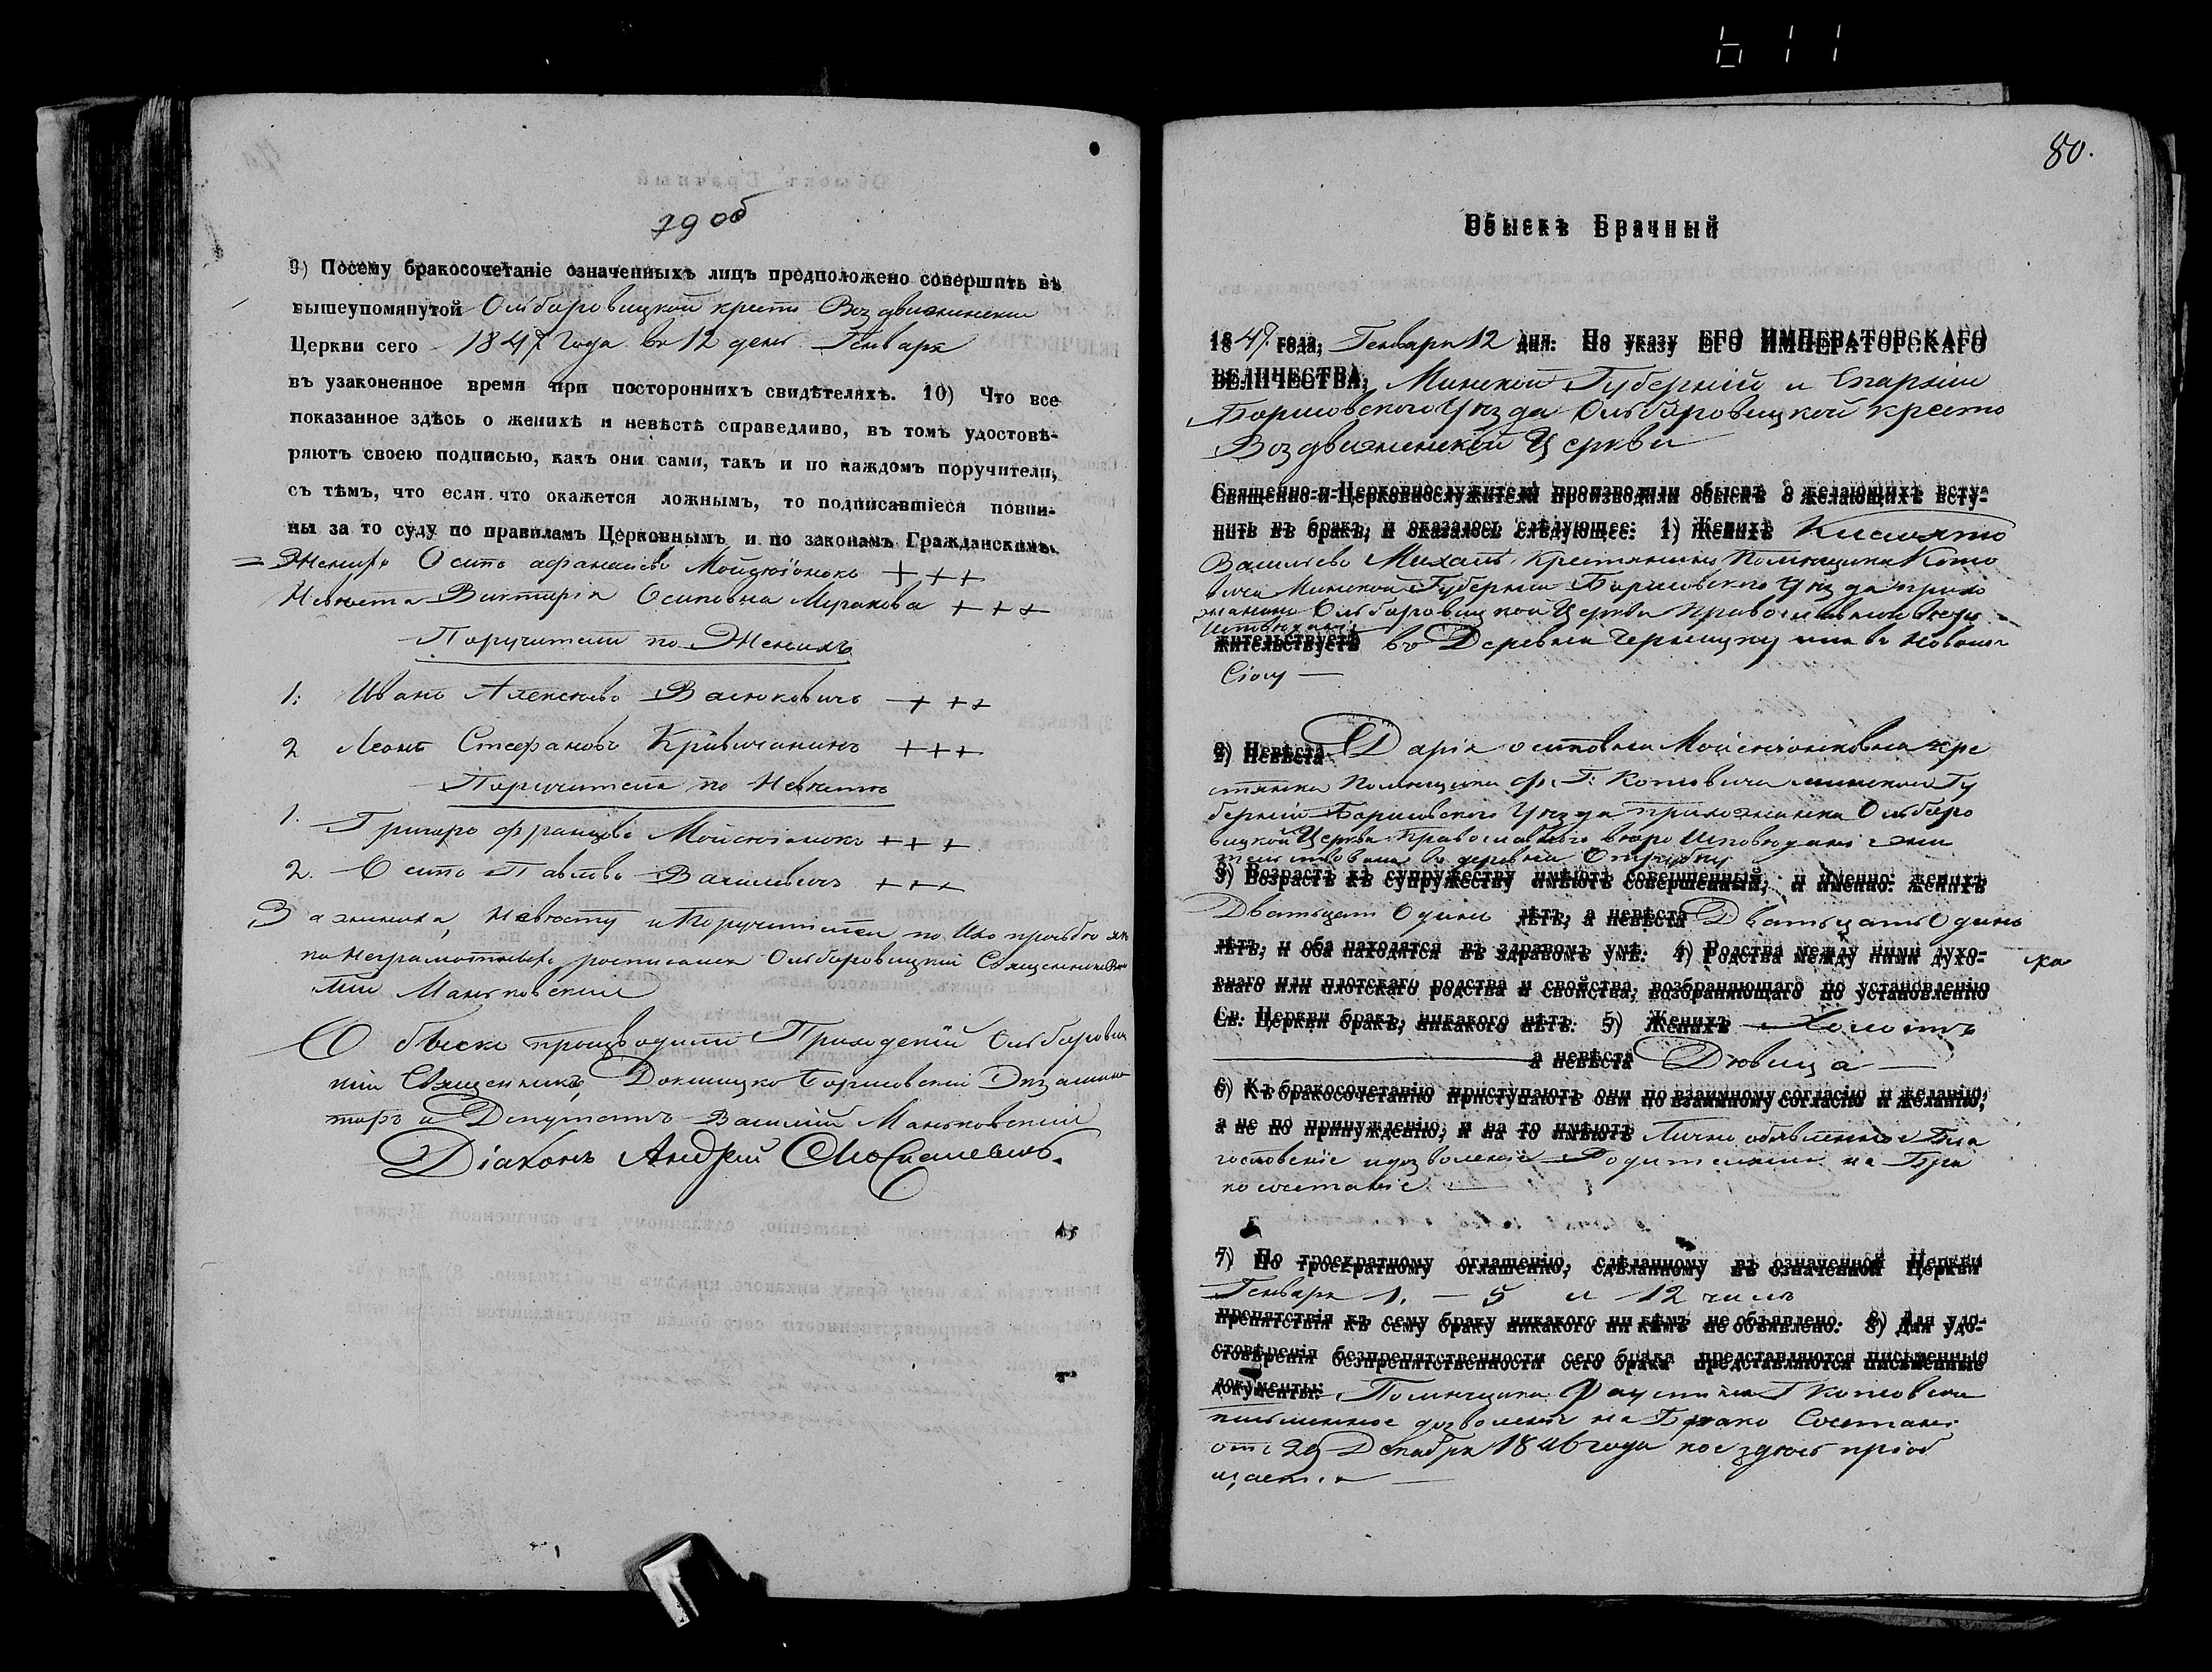 79 об
9) Посему бракосочетаніе означенныхъ лицъ предположено совершить въ
вышеупомянутой Ольборовицкой кресто Воздвиженскои
Церкви сего 1847 года во 12 день Генваря
въ узаконенное время при постороннихъ свидѣтеляхъ. 10) Что все
показанное здѣсь о женихѣ и невѣстѣ справедливо, въ томъ удостовѣ-
ряютъ своею подписью, какъ они сами, такъ и по каждомъ поручители,
съ тѣмъ, что если что окажется ложнымъ, то подписавшіеся повин-
ны за то суду по правиламъ Церковнымъ и по законамъ Гражданскимъ.
Женихъ Осипъ Афанасіевъ +++
Невѣста Викторія Осиповна +++
Поручители по Женихѣ
1. Иванъ Алексѣевъ Валюковичъ +++
2 Леонъ Стефановъ Кривичанинъ +++
Поручители по Невѣстѣ
1. Григоръ Францовъ Мойсіонокъ +++
2. Осипъ Павловъ Василевичъ +++
За жениха, Невѣсту и Поручителей по Ихъ прозьбѣ
неграмотныхъ росписался Ольборовицкій Священникъ
Маньковскій
Обыскъ производили Приходскій Ольборовиц
кій Священникъ, Докшицко Борисовскій Экзамина
торъ и Депутатъ Василій Маньковскій
Діаконъ Андрей
611
80.
Обыскъ Брачный
1847 года, Генваря 12 дня. По указу ЕГО ИМПЕРАТОРСКАГО
ВЕЛИЧЕСТВА, Минской Губерніи и Епархіи
Борисовского Уѣзда Ольборовицкой кресто
Воздвиженской Церкви
Священно-и-Церковнослужители производили обыскъ о желающихъ всту-
пить въ бракъ, и оказалось слѣдующее: 1) Женихъ
Васильевъ Крестянинъ Помѣщика Кото
вича Минской Губерніи Борисовского Уѣзда прихо
жанинъ Ольборовицкой Церкви Православной вѣры
жительствуетъ въ Деревни
2) Невѣста Дарія Осиповна кре
стянка Помѣщика Ф. Г. Котовича минской Гу
берніи Борисовского Уѣзда прихожанка Ольборо
вицкой Церкви Православного вѣро Исповѣданія жи
тельствовала въ деревни
3) Возрастъ къ супружеству имѣютъ совершенный, и именно: женихъ
Дватьцать Одинъ лѣтъ, а невѣста Дватьцать Одинъ
лѣтъ, и оба находятся въ здравомъ умѣ. 4) Родства между ними духо-
внаго или плотскаго родства и свойства, возбраняющаго по установленію
Св. Церкви бракъ, никакого нѣтъ. 5) Женихъ Холостъ
а невѣста Дѣвица
6) Къ бракосочетанію приступаютъ они по взаимному согласію и желанію,
а не по принужденію, и на то имѣютъ Лично объявленное Бла
гословеніе и дозволеніе Родителями на Бра
косочетаніе
7) По троекратному оглашенію, сдѣланному въ означенной Церкви
Генваря 1. – 5 и 12 числъ
препятствія къ сему браку никакого ни кѣмъ не объявлено. 8) Для удо-
стовѣренія безпрепятственности сего брака представляются письменные
документы: Помѣщика
письменное дозволеніе на Брако Сочетаніе
отъ 29 Декабря 1846 года при об